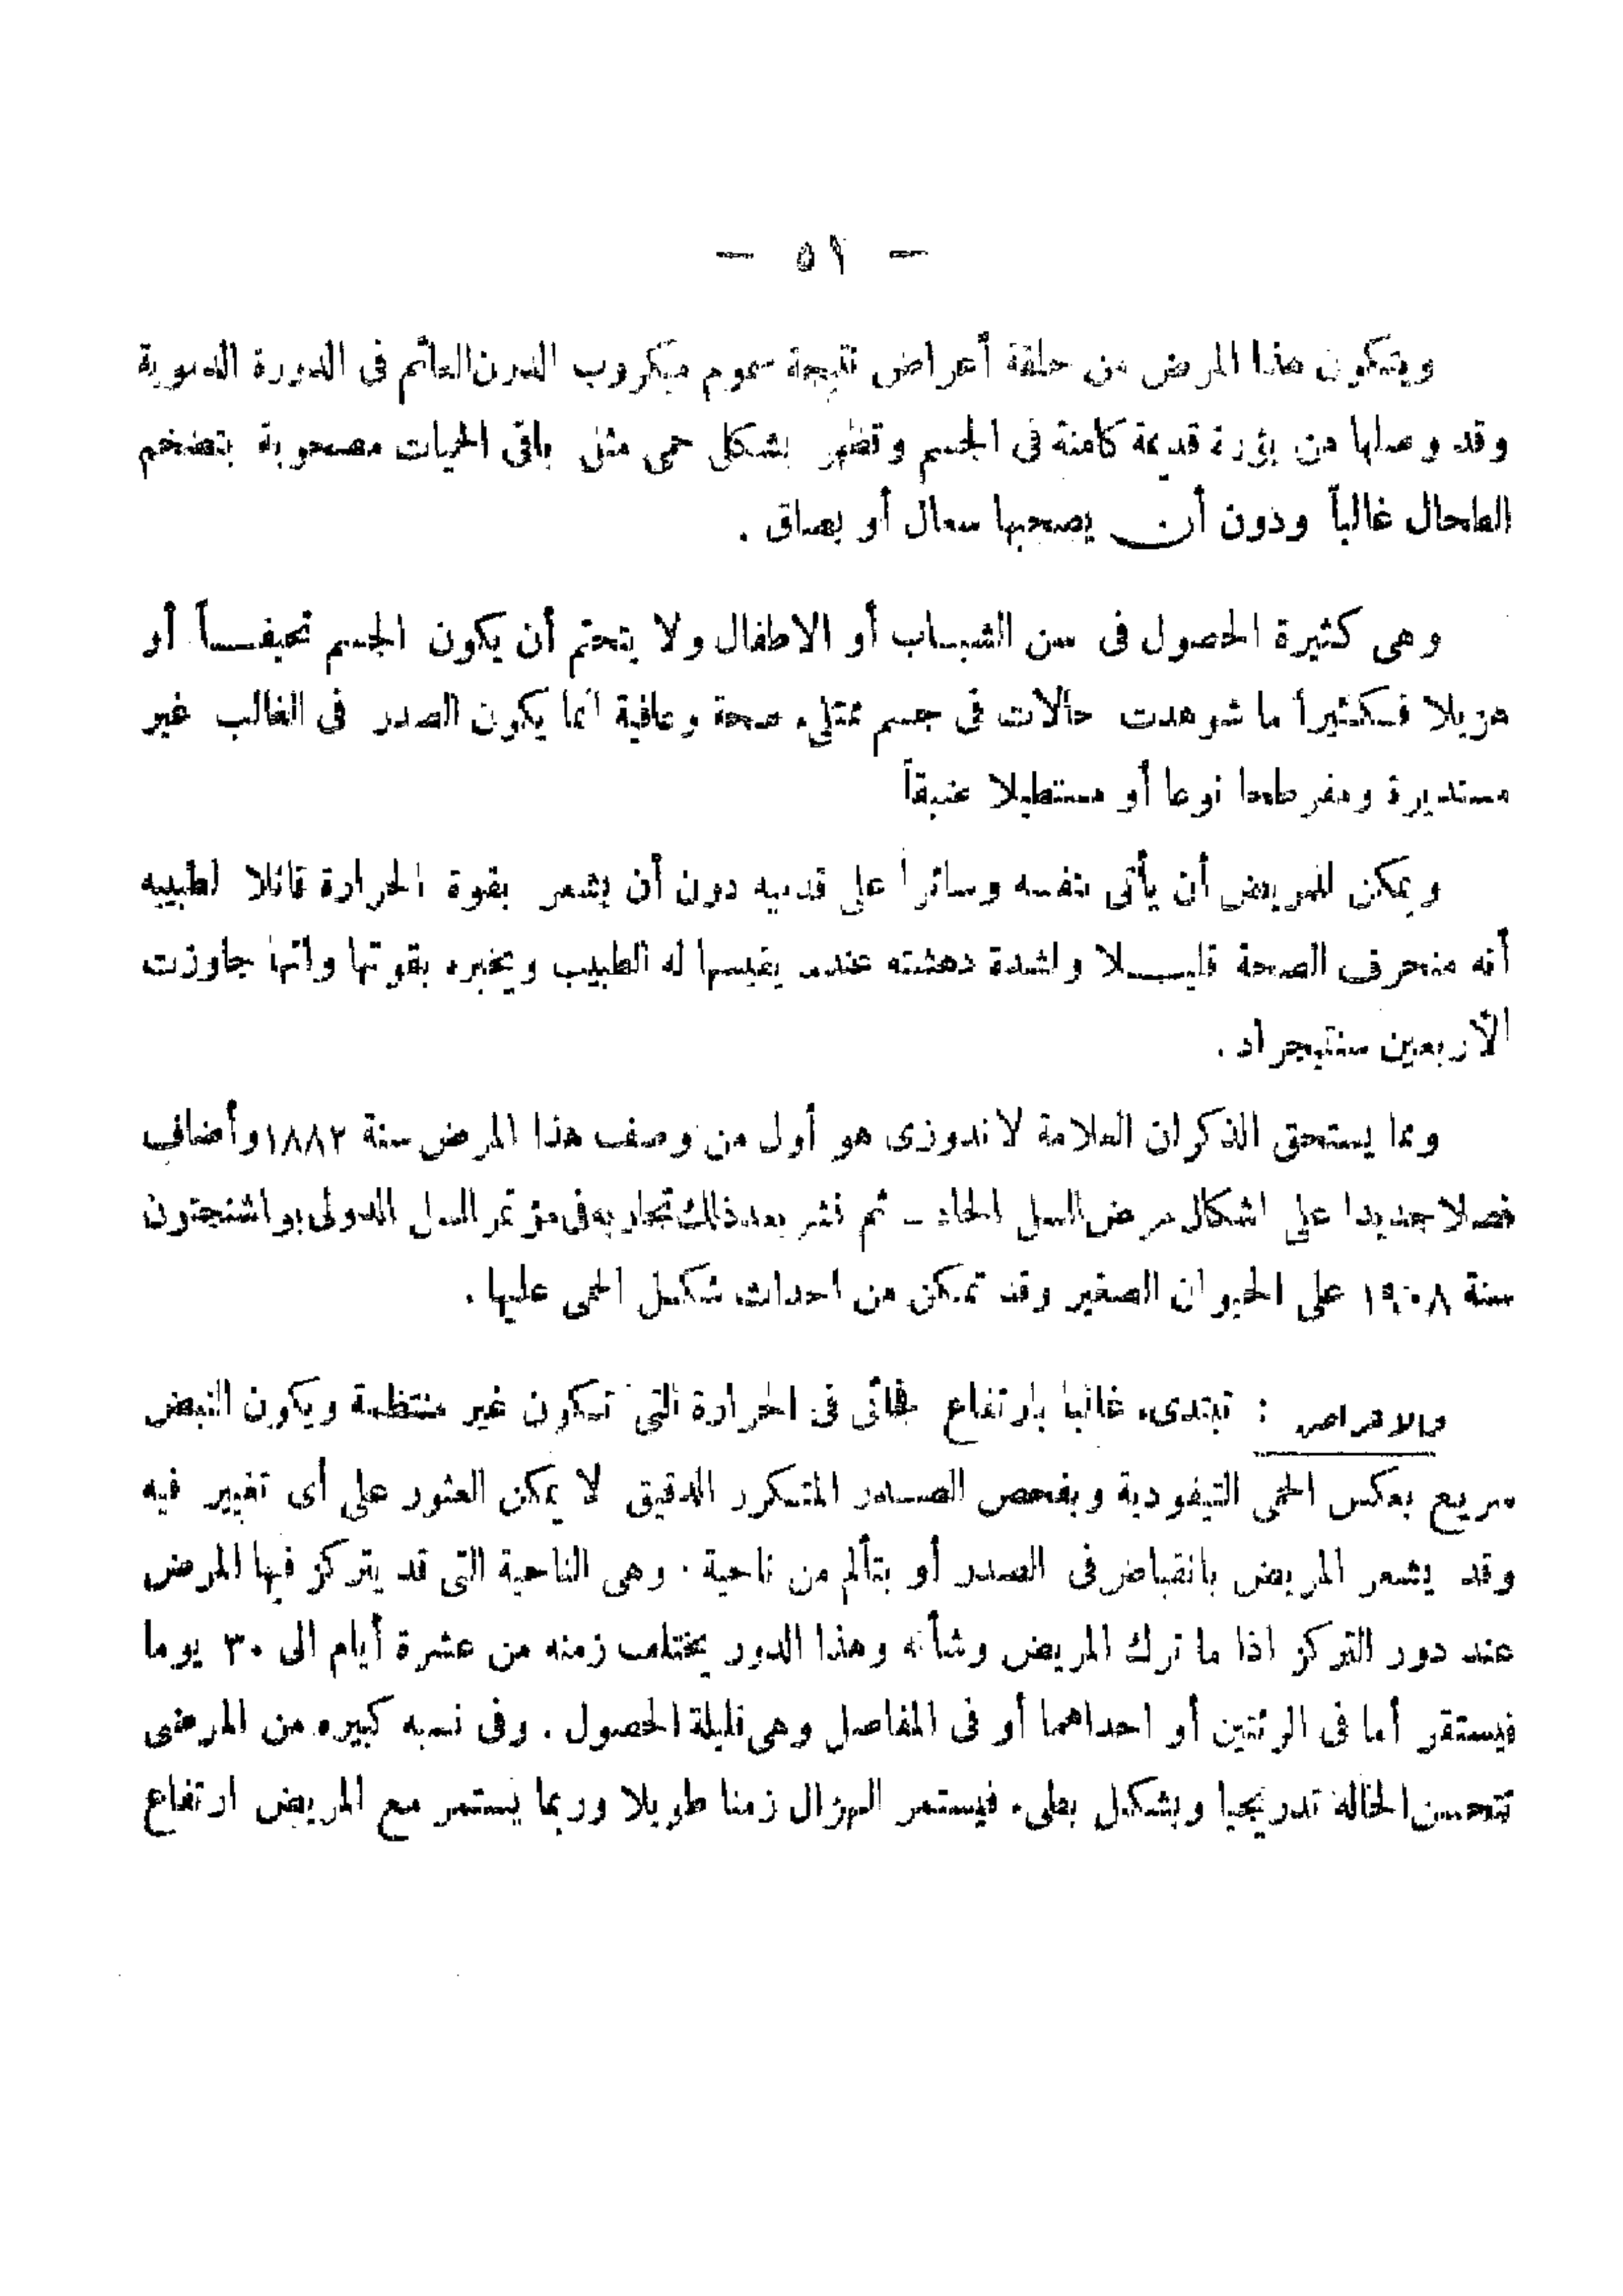 — ٥١ —
ويتكون هذا المرض من حلقة أعراض نتيجة سموم ميكروب الدرن العائم فى الدورة الدموية
وقد وصلها من بؤرة قديمة كامنة فى الجسم وتظهر بشكل حمى مثل باقى الحميات مصحوبة بتضخم
الطحال غالباً ودون أن يصحبها سعال أو بصاق .
وهى كثيرة الحصول فى سن الشباب أو الاطفال ولا يتحتم أن يكون الجسم نحيفاً أو
هزيلا فكثيراً ما شوهدت حالات فى جسم ممتلىء صحة وعافية انما يكون الصدر فى الغالب غير
مستديرة ومفرطحا نوعا أو مستطيلا
ويمكن للمريض أن يأتى بنفسه وسائرا على قدميه دون أن يشعر بقوة الحرارة قائلا لطبيبه
أنه منحرف الصحة قليلا ولشدة دهشته عند يقيسها له الطبيب ويخبره بقوتها وانها جاوزت
الأربعين سنتيجراد .
ومما يستحق الذكر ان العلامة لاندوزى هو أول من وصف هذا المرض سنة ١٨٨٢ وأضاف
فصلا جديدا على اشكال مرض السل الحاد ـ ثم نشر بعد ذلك تجاربه فى مؤتمر السل الدولى بواشنجتون
سنة ١٩٠٨ على الحيوان الصغير وقد تمكن من احداث شكل الحمى عليها .
والاعراض : تبتدىء غالبا بارتفاع فجائى فى الحرارة التى تكون غير منتظمة ويكون النبض
سريع بعكس الحمى التيفودية وبفحص الصدر المتكرر الدقيق لا يمكن العثور على أى تغيير فيه
وقد يشعر المريض بانقباض فى الصدر أو بتألم من ناحية . وهى الناحية التى قد يتركز فيها المرض
عند دور التركز اذا ما ترك المريض وشأنه وهذا الدور يختلف زمنه من عشرة أيام الى ٣٠ يوما
فيستقر أما فى الرئتين أو احداهما أو فى المفاصل وهى قليلة الحصول . وفى نسبه كبيره من المرضى
تتحسن الحالة تدريجيا وبشكل بطىء فيستمر الهزال زمنا طويلا وربما يستمر مع المريض ارتفاع